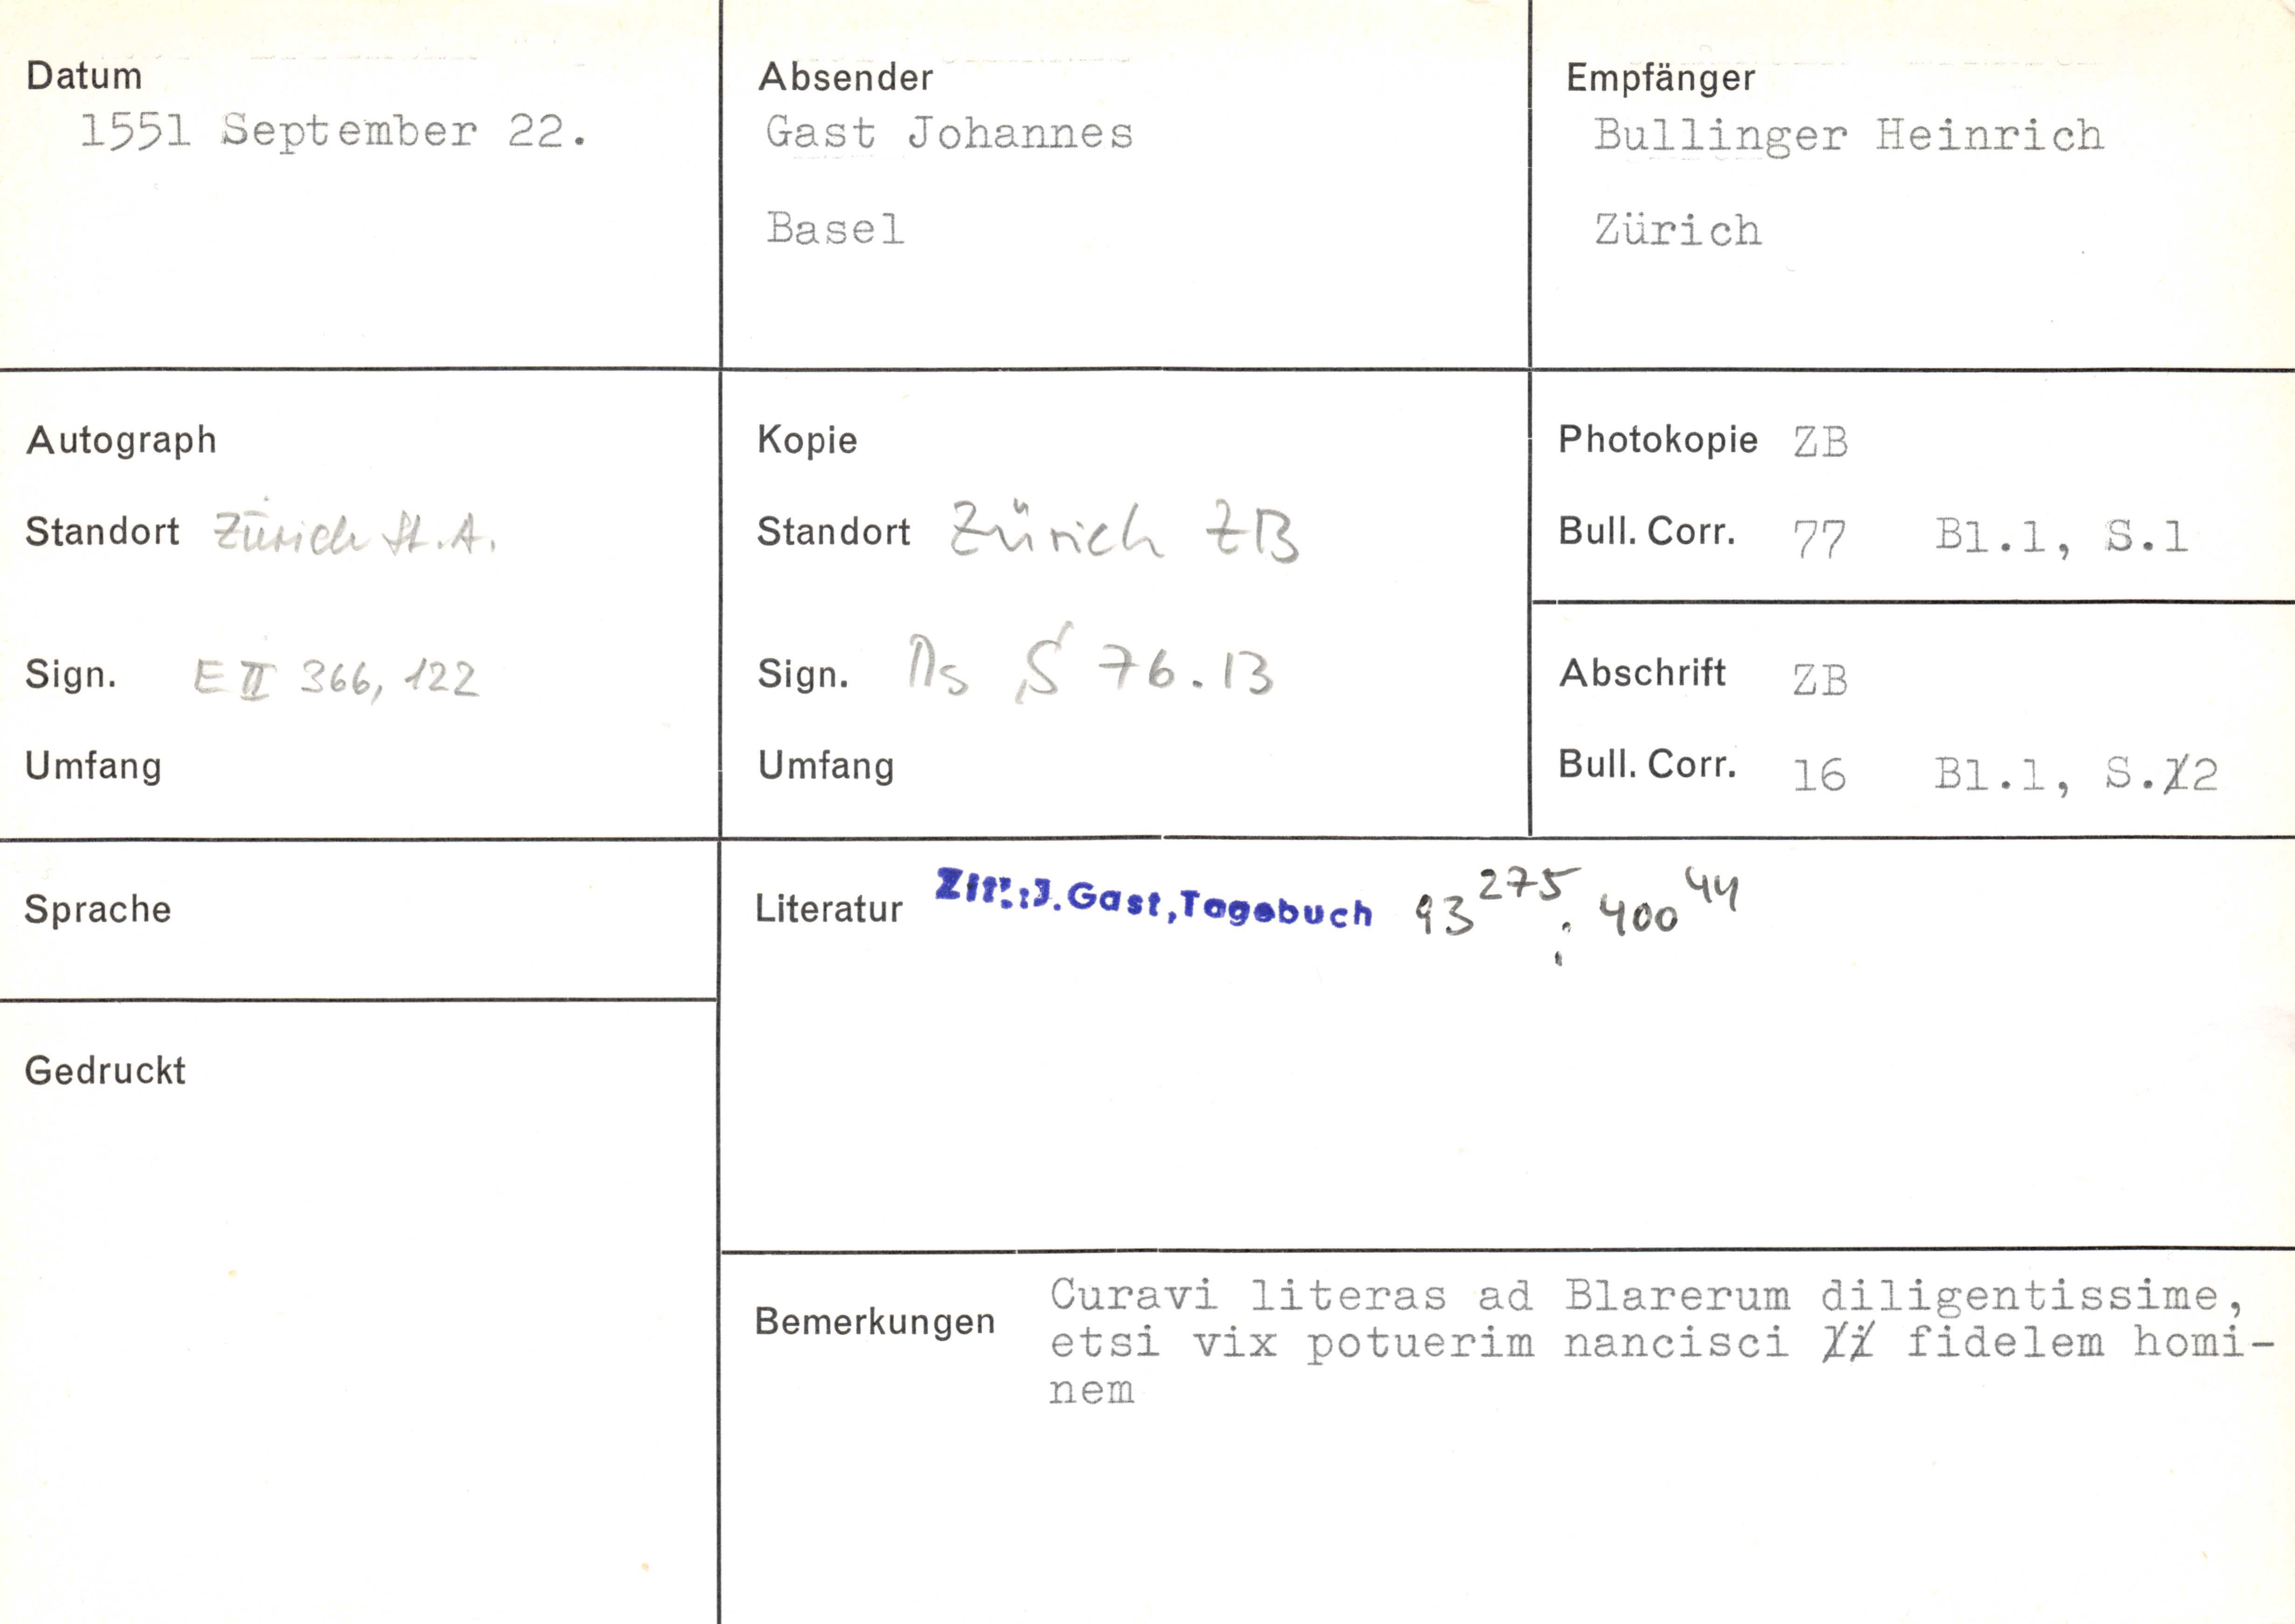 Datum
1551 September 22.
Absender
Gast Johannes
Basel
Empfänger
Bullinger Heinrich
Zürich
Autograph
Standort Zürich St.A.
Sign. E II 366, 122
Umfang
Kopie
Standort Zürich ZB
Sign. Ms S 76.13
Umfang
Photokopie ZB
Bull. Corr. 77 Bl.1, S.1
Abschrift ZB
Bull. Corr. 16 Bl.1, S.2
Sprache
Literatur Zit.: J. Gast, Tagebuch 93 275; 400 44
Gedruckt
Bemerkungen
Curavi literas ad Blarerum diligentissime,
etsi vix potuerim nancisci fidelem homi-
nem